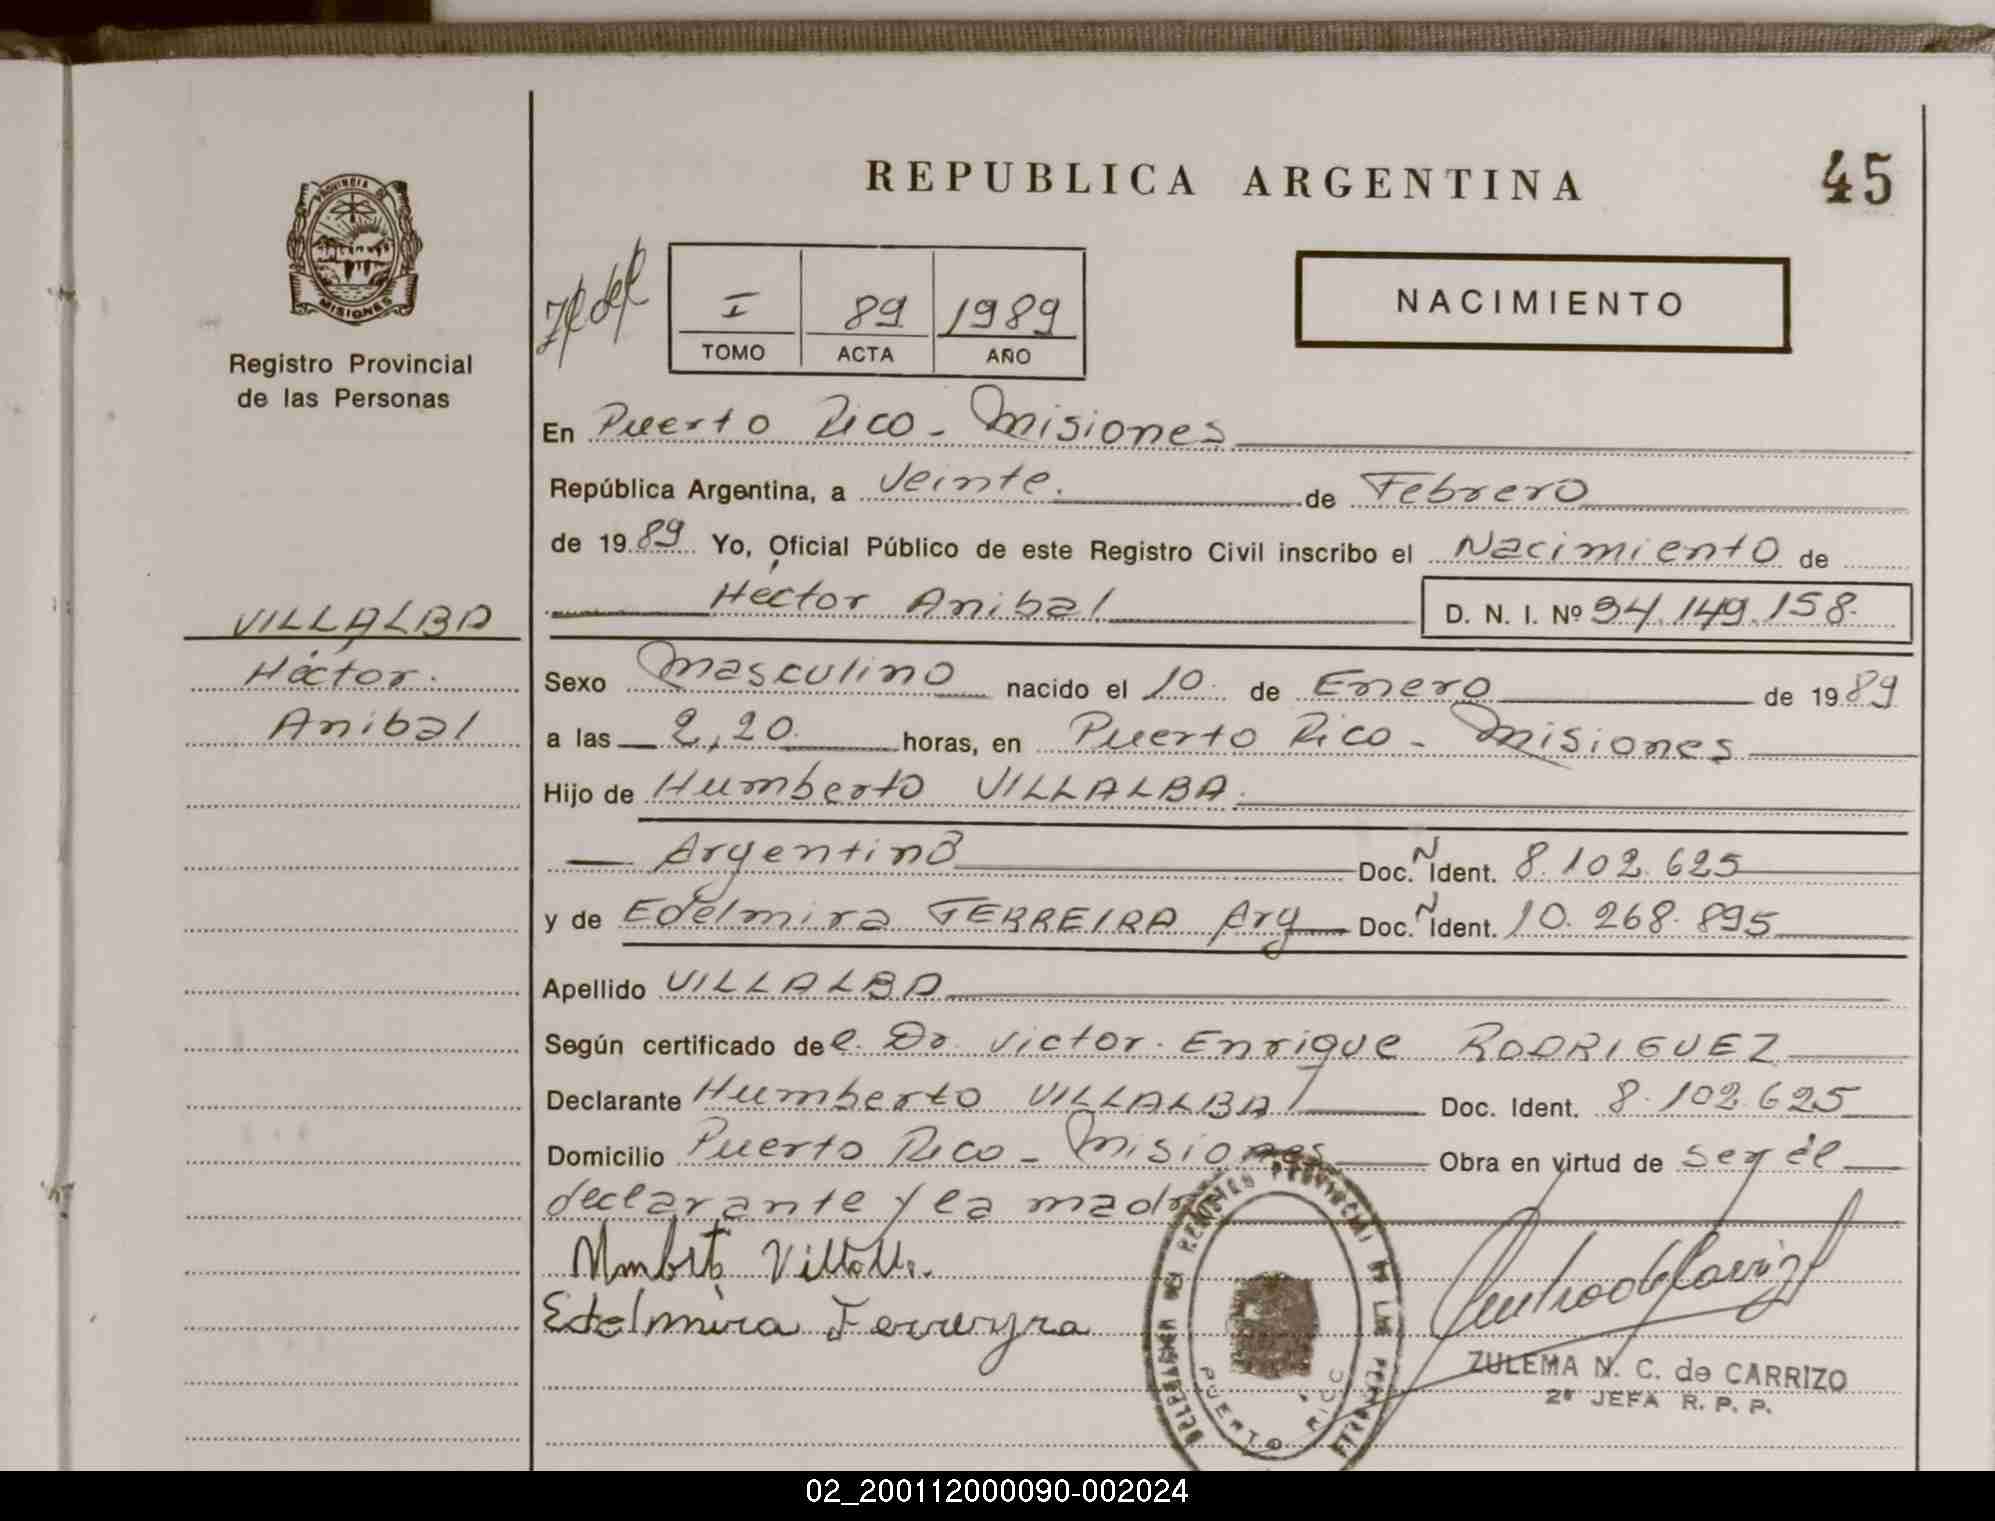 REPUBLICA ARGENTINA
45
PROVINCIA DE
MISIONES
Registro Provincial
de las Personas
I 89 1989
TOMO ACTA AÑO
NACIMIENTO
En Puerto Rico - Misiones
República Argentina, a Veinte. de Febrero
de 19 89 Yo, Oficial Público de este Registro Civil inscribo el Nacimiento de
Héctor Anibal D. N. I. Nº 34.149.158.
VILLALBA
Héctor.
Anibal
Sexo Masculino nacido el 10. de Enero de 19 89
a las 2,20. horas, en Puerto Rico - Misiones
Hijo de Humberto VILLALBA.
Argentino Doc. N Ident. 8.102.625
y de Edelmira FERREIRA Arg Doc. N Ident. 10.268.895
Apellido VILLALBA
Según certificado del. Dr. Victor. Enrique RODRIGUEZ
Declarante Humberto VILLALBA Doc. Ident. 8.102.625
Domicilio Puerto Rico - Misiones Obra en virtud de ser él
declarante y la madre
Edelmira Ferreyra
DELEGACION DEL REGISTRO PROVINCIAL DE LAS PERSONAS
PUERTO RICO
ZULEMA N. C. de CARRIZO
2º JEFA R. P. P.
02_200112000090-002024